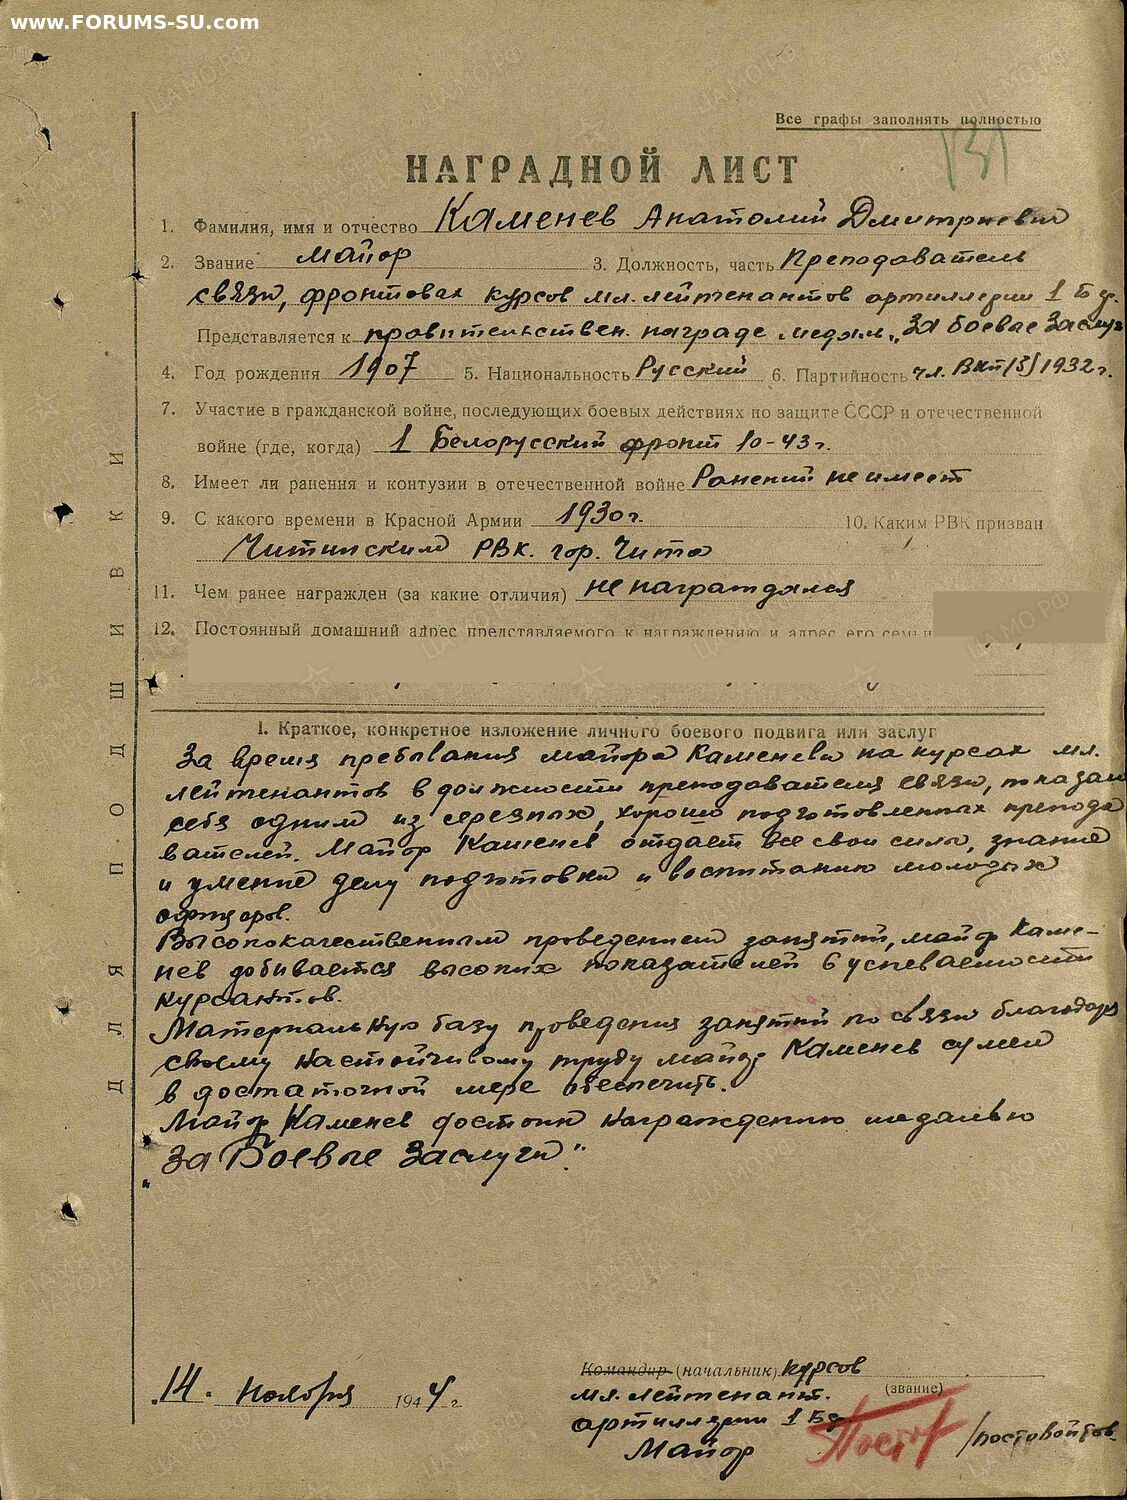 www.FORUMS-SU.com
Все графы заполнять полностью
131
НАГРАДНОЙ ЛИСТ
1. Фамилия, имя и отчество Каменев Анатолий Дмитриевич
2. Звание майор 3. Должность, часть Преподаватель
связи, фронтовых курсов мл. лейтенантов артиллерии 1 Бф.
Представляется к правительствен. награде медаль „За боевые Заслуг
4. Год рождения 1907 5. Национальность Русский 6. Партийность чл. ВКП/б/ 1932 г.
7. Участие в гражданской войне, последующих боевых действиях по защите СССР и отечественной
войне (где, когда) 1 Белорусский фронт 10-43 г.
8. Имеет ли ранения и контузии в отечественной войне Ранений не имеет
9. С какого времени в Красной Армии 1930 г. 10. Каким РВК призван
Читинским РВК. гор. Чита
11. Чем ранее награжден (за какие отличия) не награждался
12. Постоянный домашний адрес представляемого к награждению и адрес его семьи
I. Краткое, конкретное изложение личного боевого подвига или заслуг
За время пребывания майора Каменева на курсах мл.
лейтенантов в должности преподавателя связи, показал
себя одним из серезных, хорошо подготовленных препода
вателей. Майор Каменев отдает все свои силы, знание
и умение делу подготовки и воспитанию молодых
офицеров.
Высококачественным проведением занятий, майор Каме-
нев добивается высоких показателей в успеваемости
курсантов.
Материальную базу проведения занятий по связи благодаря
своему настойчивому труду майор Каменев сумел
в достаточной мере обеспечить.
Майор Каменев достоин награждению медалью
„За Боевые Заслуги".
ДЛЯ ПОДШИВКИ
„14. ноября 1944 г.
Командир (начальник) курсов
(звание)
мл. лейтенант.
артиллерии 1 Бф
Майор Пост /постовойтов.